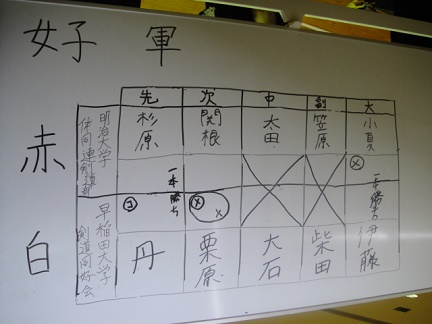 好子軍
先 次 中 副 大
赤 明治大学 体同連剣道部 杉原 関根 太田 笠原 小貝
一本勝ち メ
コ メ メ 一本勝ち
白 早稲田大学 剣道同好会 丹 栗原 大石 柴田 伊藤